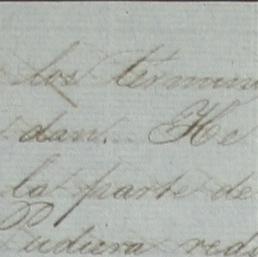 los termin
dan. He
la parte de
Pudiera reds